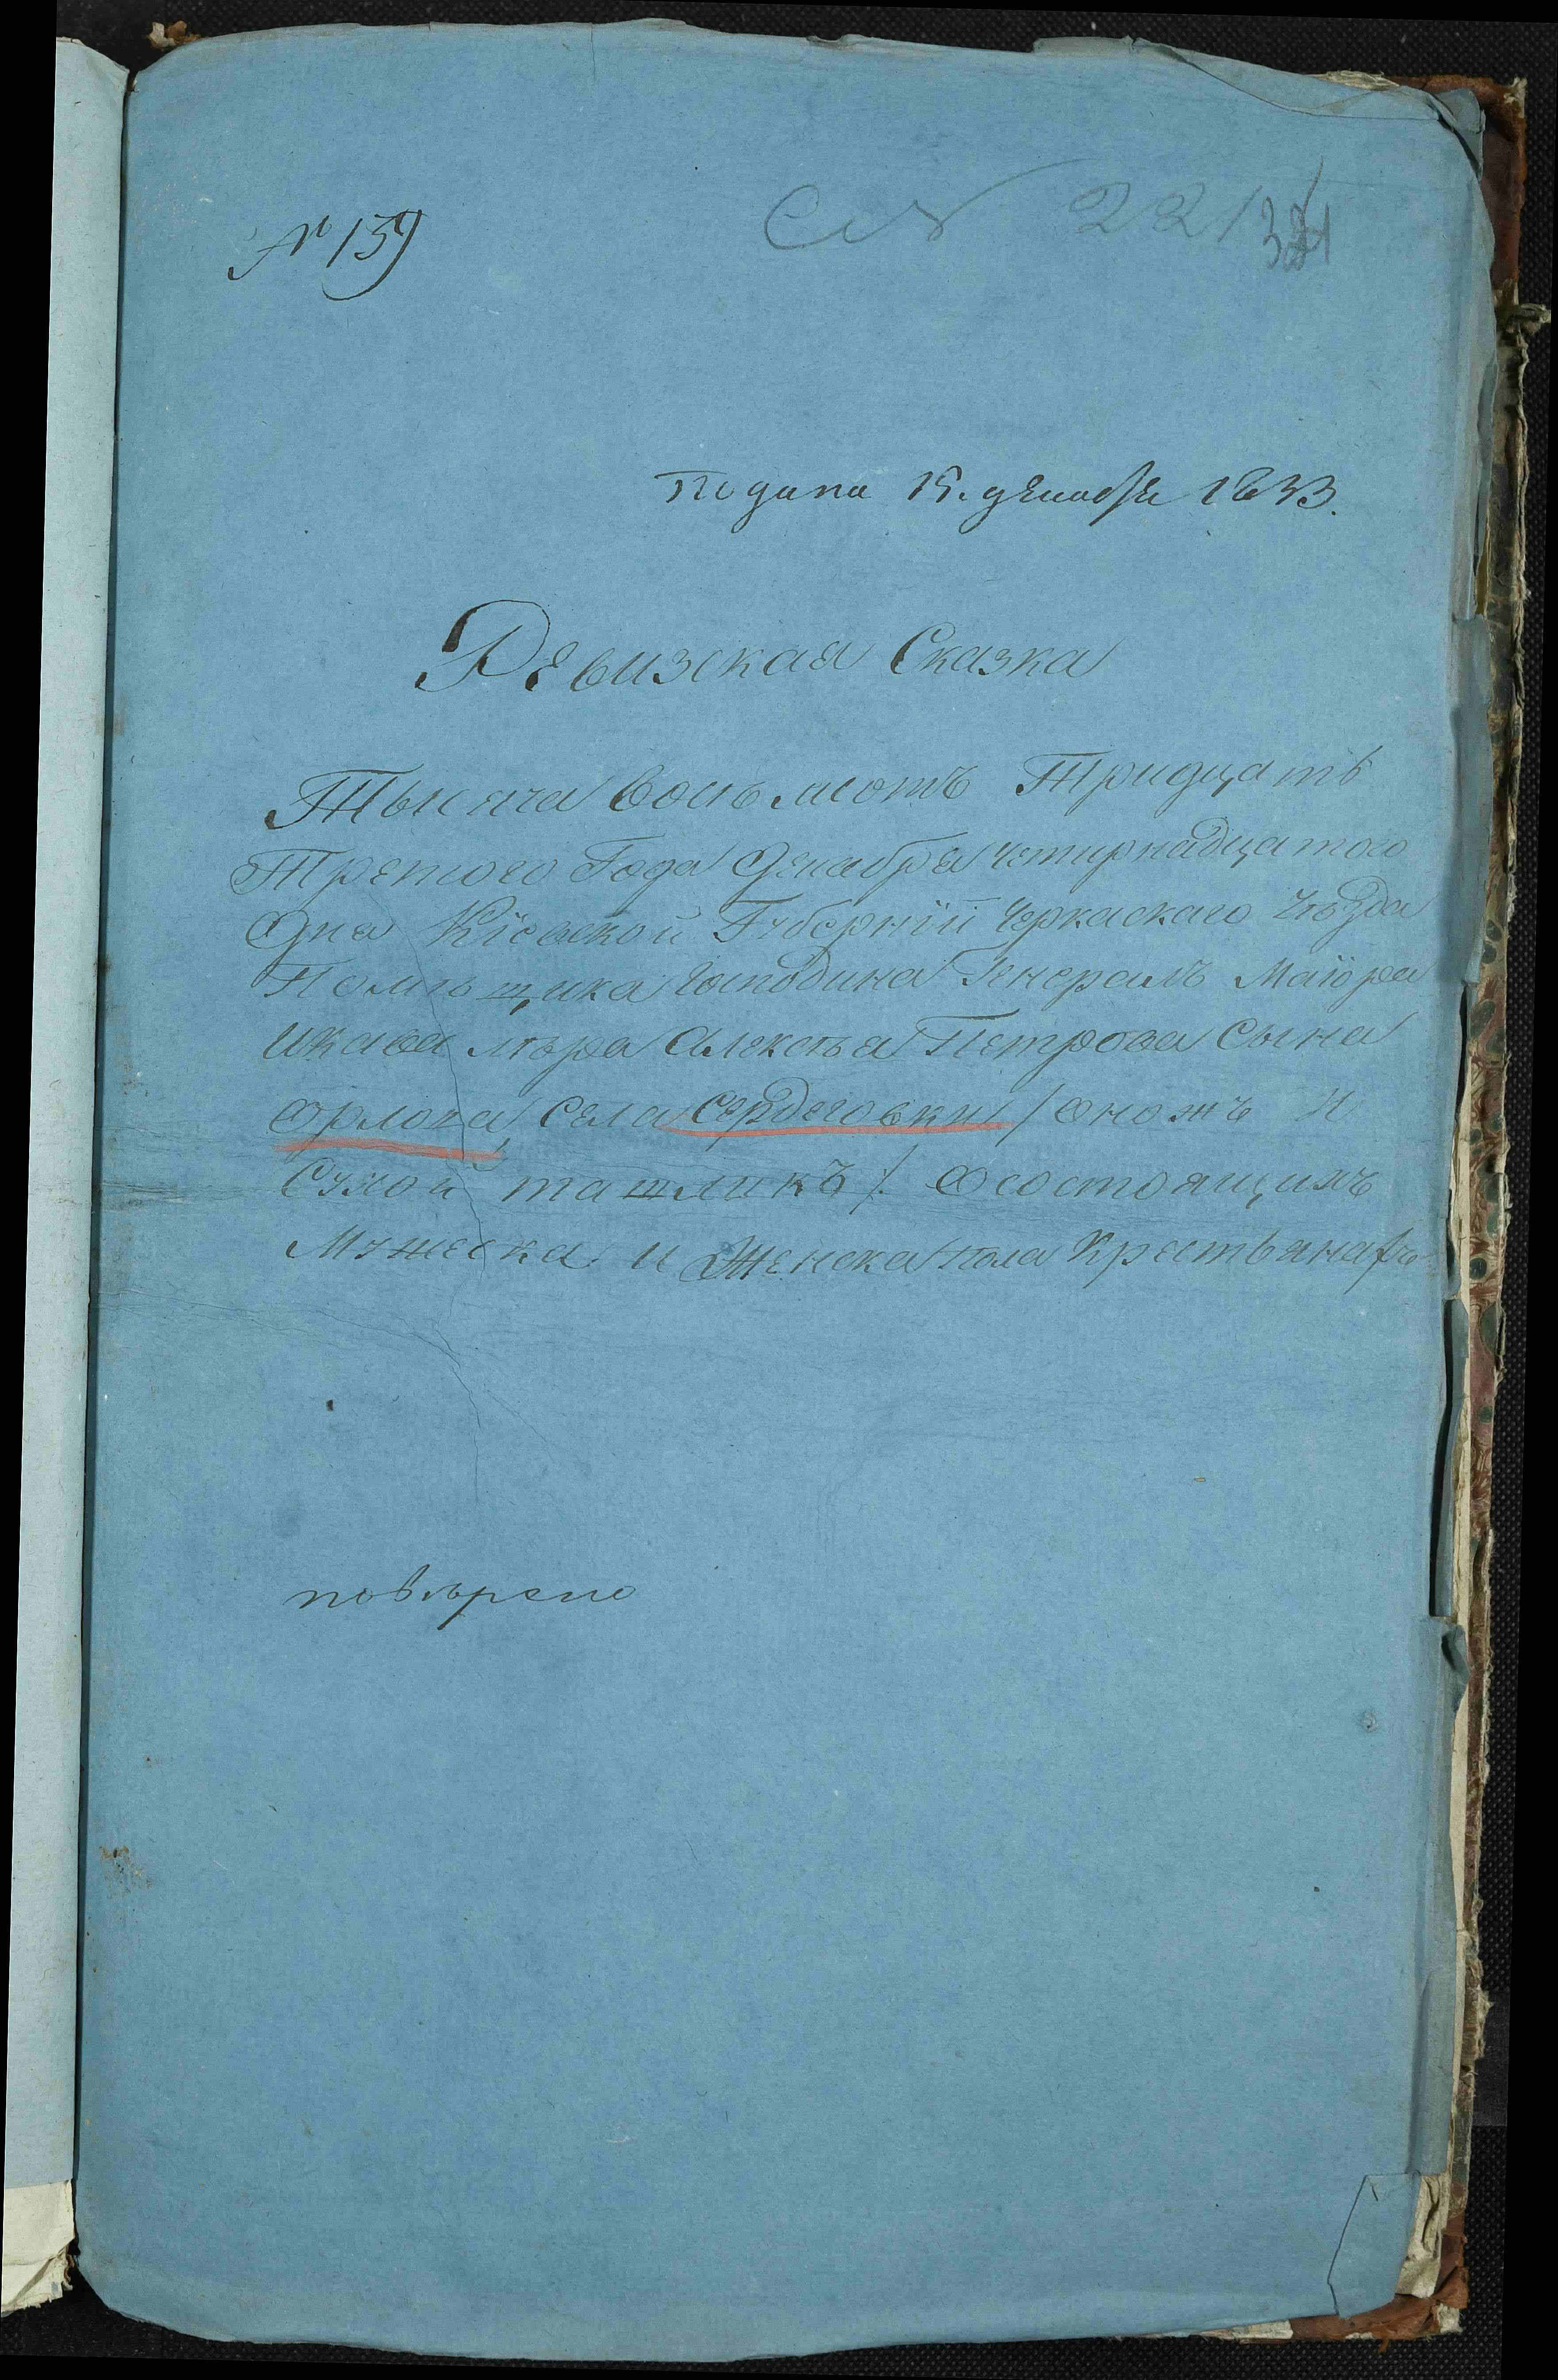 № 159
221
Подана 15. декабря 1833.
Ревизская Сказка
Тысяча восъмсотъ Тридцать
Третого Года Декабря четирнадцатого
Дня Кіевской Губерніи Черкаскаго уѣзда
Помѣщика Господина Генералъ Маіора
Икавалѣра Алексѣя Петрова Сына
Орлова Села Сердеговки / оножъ и
Сухой ташликъ /. Осостоящихъ
Мужеска и Женска пола Крестьянахъ
повѣрено